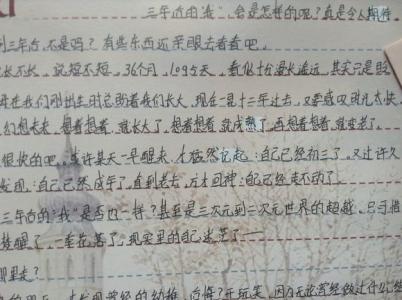 三年后的"我"会是怎样的呢？真是令人期待。
到三年后，不是吗？有些东西还亲眼去看看吧。
长不长，说短不短，36个月，1095天，看似十分漫长遥远，其实只是
在我们刚出生时总盼着我们长大，现在一晃十二年过去，又要感叹时光太快
幻想未来，想着想着，就长大了，想着想着，就成熟了，再想着想着，就变老了。
很快的吧。或许某天一早醒来，才猛然记起：自己已经初三了。又过许久
发现：自己已然成年了。直到老去，方才回神：自己已经走不动了。
三年后的"我"是否也一样？甚至是三次元到二次元世界的超越。只可惜
梦醒了，一
花落了，现实里的自己迷茫了——
哪里走？
才发现曾经的幼稚，后悔？开玩笑，因为无论曾经做过什么